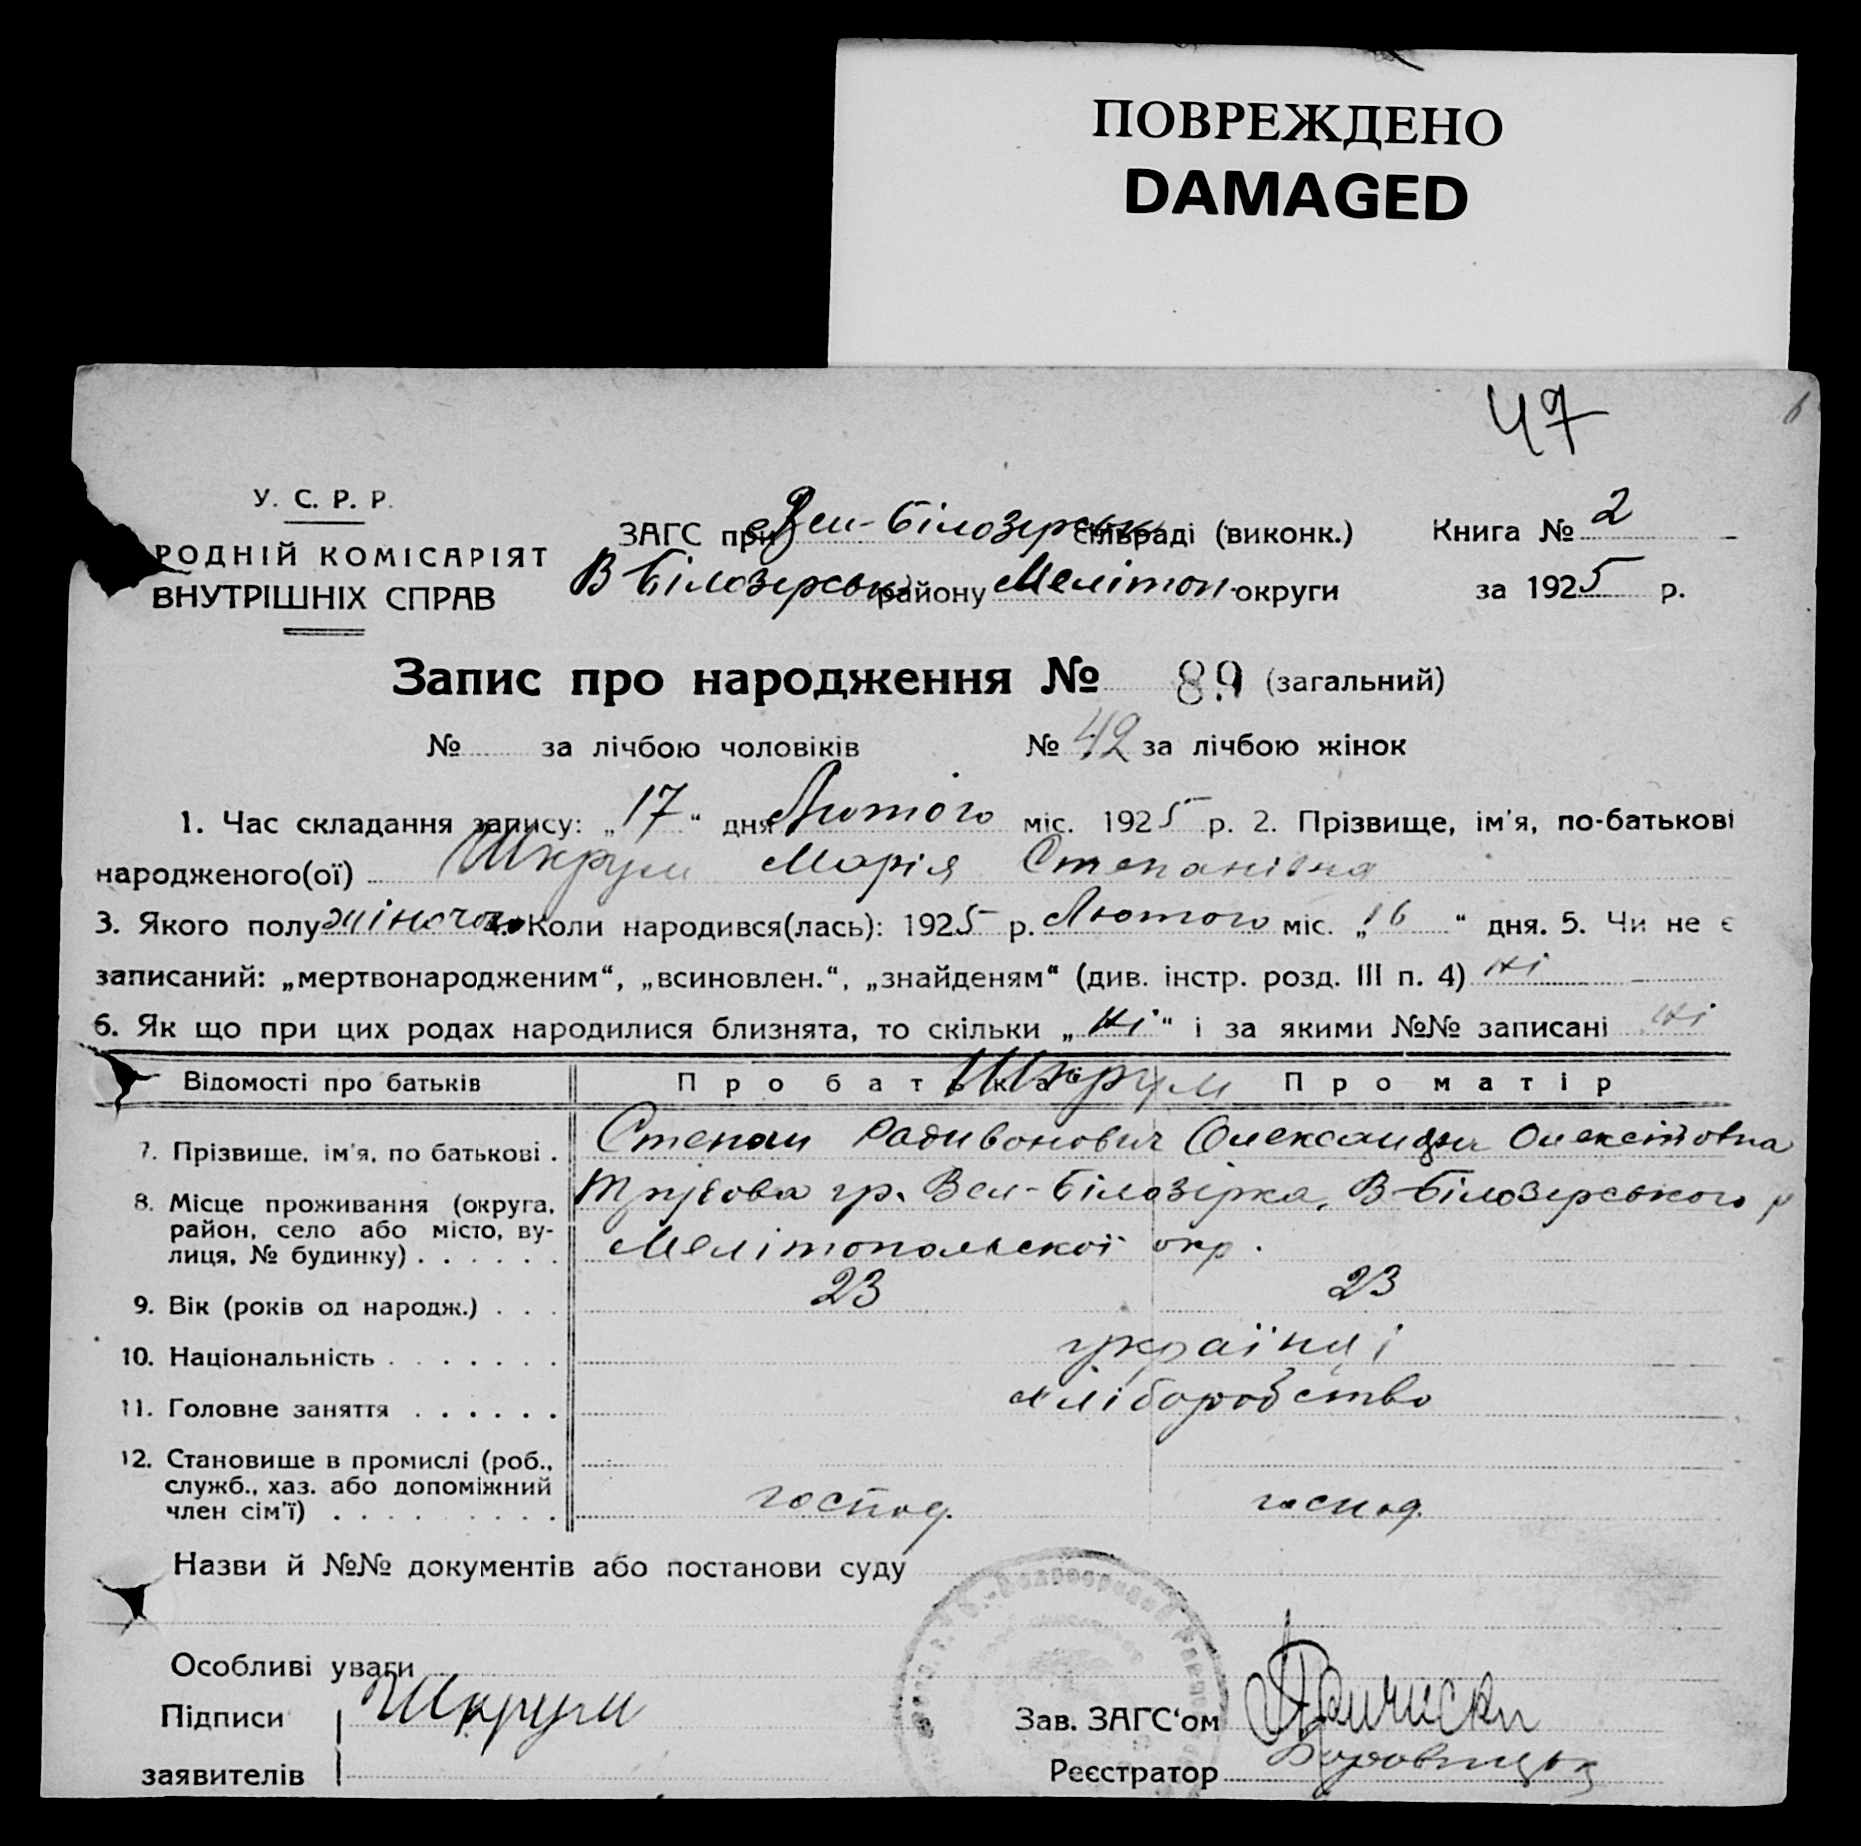 ПОВРЕЖДЕНО
DAMAGED
47
У. С. Р. Р.
РОДНІЙ КОМІСАРІЯТ
ВНУТРІШНІХ СПРАВ
ЗАГС при Вел-Білозерськ сільраді (виконк.)
В Білозерськ району Мелітоп. округи
Книга № 2
за 1925 р.
Запис про народження № 89 (загальний)
№ за лічбою чоловіків № 42 за лічбою жінок
1. Час складання запису: „17“ дня Лютого міс. 1925 р. 2. Прізвище, ім'я, по-батькові
народженого(ої) Шкрум Марія Степанівна
3. Якого полу жіночого 4. Коли народився(лась): 1925 р. Лютого міс. „16“ дня. 5. Чи не є
записаний: „мертвонародженим“, „всиновлен.“, „знайденям“ (див. інстр. розд. III п. 4) ні
6. Як що при цих родах народилися близнята, то скільки „ні“ і за якими №№ записані ні
Відомості про батьків Про батька Шкрум Про матір
7. Прізвище, ім'я, по батькові . Степан Радивонович Олександра
8. Місце проживання (округа, район, село або місто, вулиця, № будинку) . . . . . . гр. Вел-Білозірка, В-Білозерського р
Мелітопольскої окр.
9. Вік (років од народж.) . . . 23 23
10. Національність . . . . . . . українці
11. Головне заняття . . . . . . хліборобство
12. Становище в промислі (роб., служб., хаз. або допоміжний член сім'ї) . . . . . . . . . господ. господ.
Назви й №№ документів або постанови суду
Особливі уваги
Підписи Шкрум
заявителів
Зав. ЗАГС'ом
Реєстратор